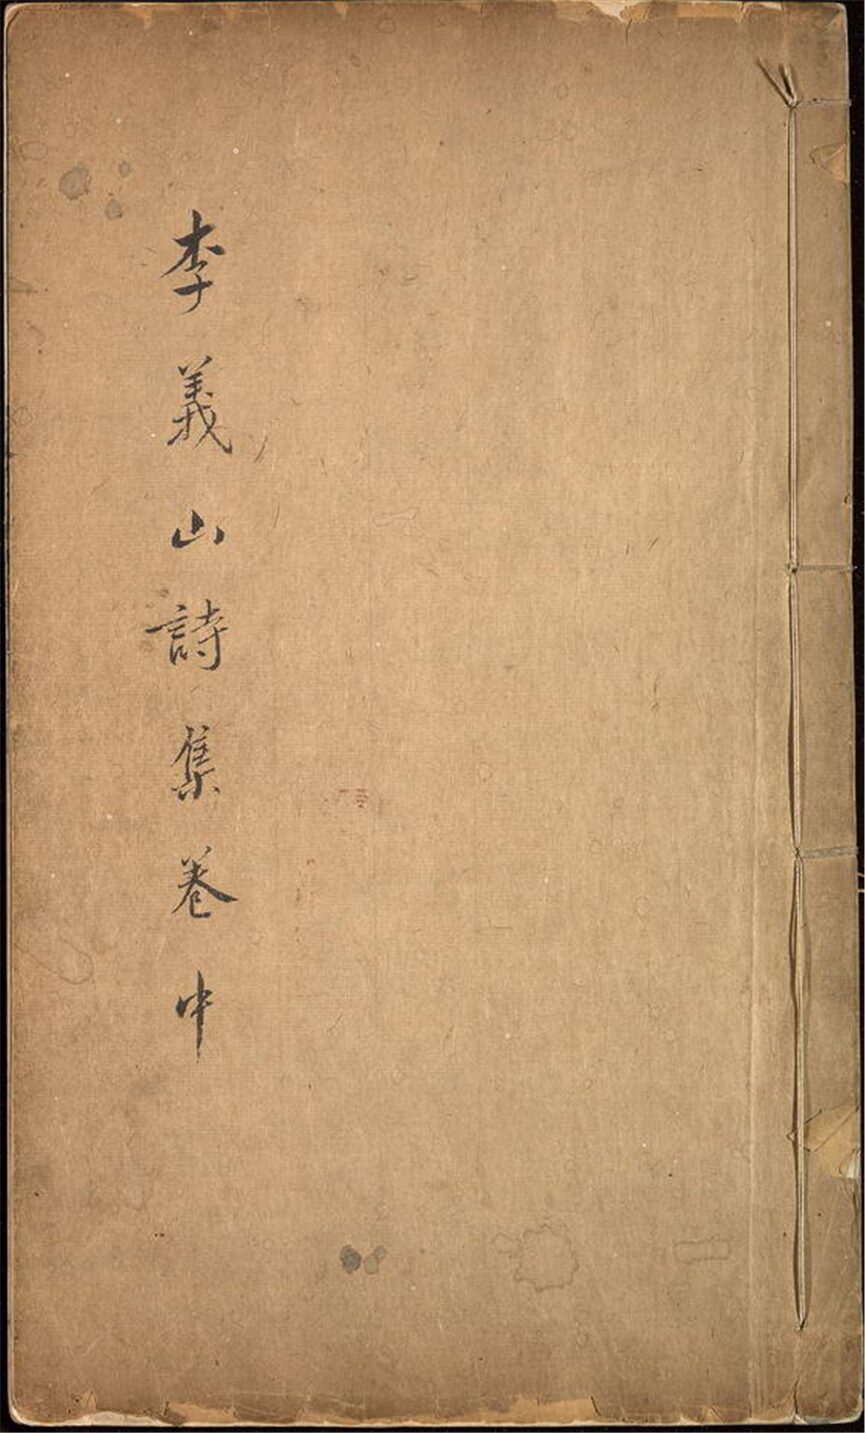 李義山詩集卷中